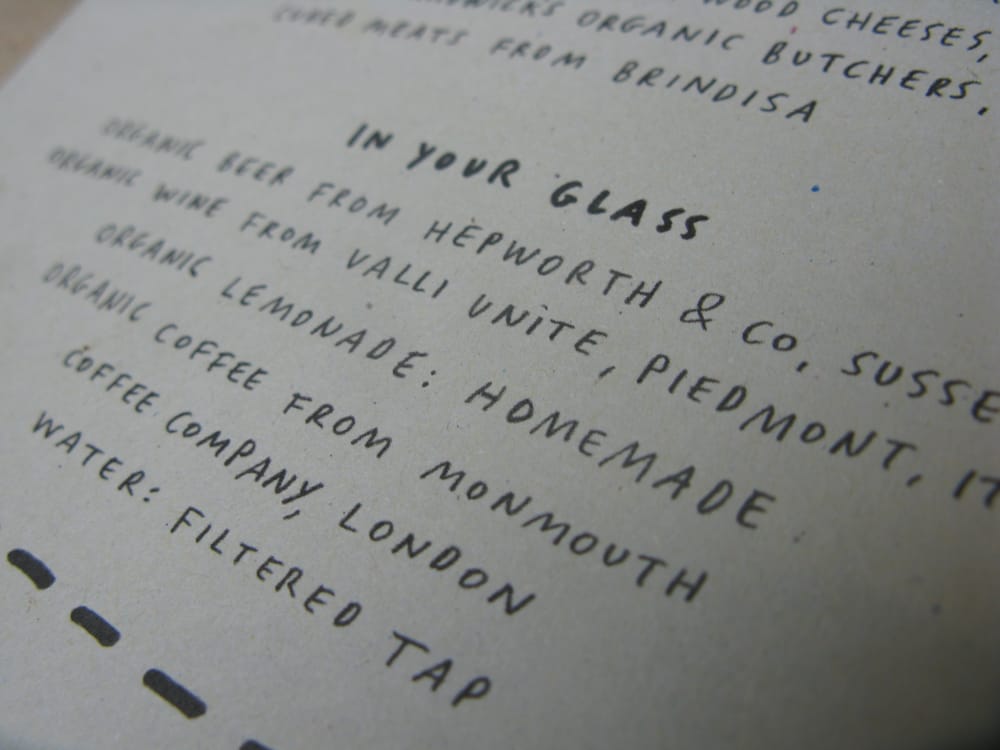 WOOD CHEESES,
ORGANIC BUTCHERS,
CURED MEATS FROM BRINDISA
IN YOUR GLASS
ORGANIC BEER FROM HEPWORTH & CO, SUSSE
ORGANIC WINE FROM VALLI UNITE, PIEDMONT, IT
ORGANIC LEMONADE: HOMEMADE
ORGANIC COFFEE FROM MONMOUTH
COFFEE COMPANY, LONDON
WATER: FILTERED TAP